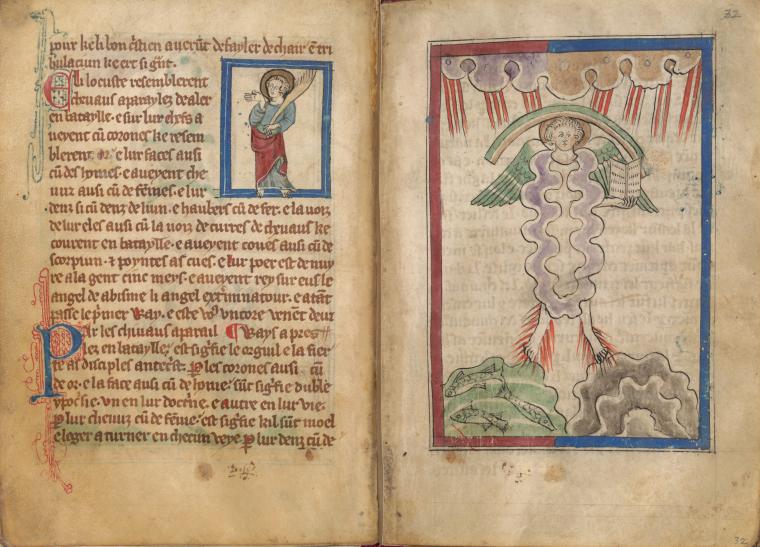 pour ke li bon cristien averunt defayler de chair e tri
bulaciun ke ert si grant.
Eli locuste resemblerent
chivaus aparaylez de aler
en bataylle. e sur lur chefs a
veyent cu corones ke resem
blerent or. e lur faces ausi
cu des homes. e aveyent che
veuz ausi cu de femes. e lur
denz si cu denz de liun. e haubers cu de fer. e la voiz
de lur eles ausi cu la voiz de curres de chivaus ke
courent en bataylle. e aveyent coues ausi cu de
scorpiun. e poyntes as cues. e lur poer est de nuy
re a la gent cinc meys. e aveyent rey sur eus le
angel de abisme li angel exterminatour. e atant
passe le premer way. e uncore venent deuz
ways apres
Par les chivaus aparail
lez en bataylle. est signifie le orguil e la fier
te as disciples antecrist. Par les corones ausi cu
de or. e la face ausi cu de home. sunt signifie duble
ypocrisie. un en lur doctrine. e autre en lur vie.
Par lur cheveuz cu de feme. est signifie kil sunt moel
e leger a turner en checun veye. Par lur denz cu de
32
32